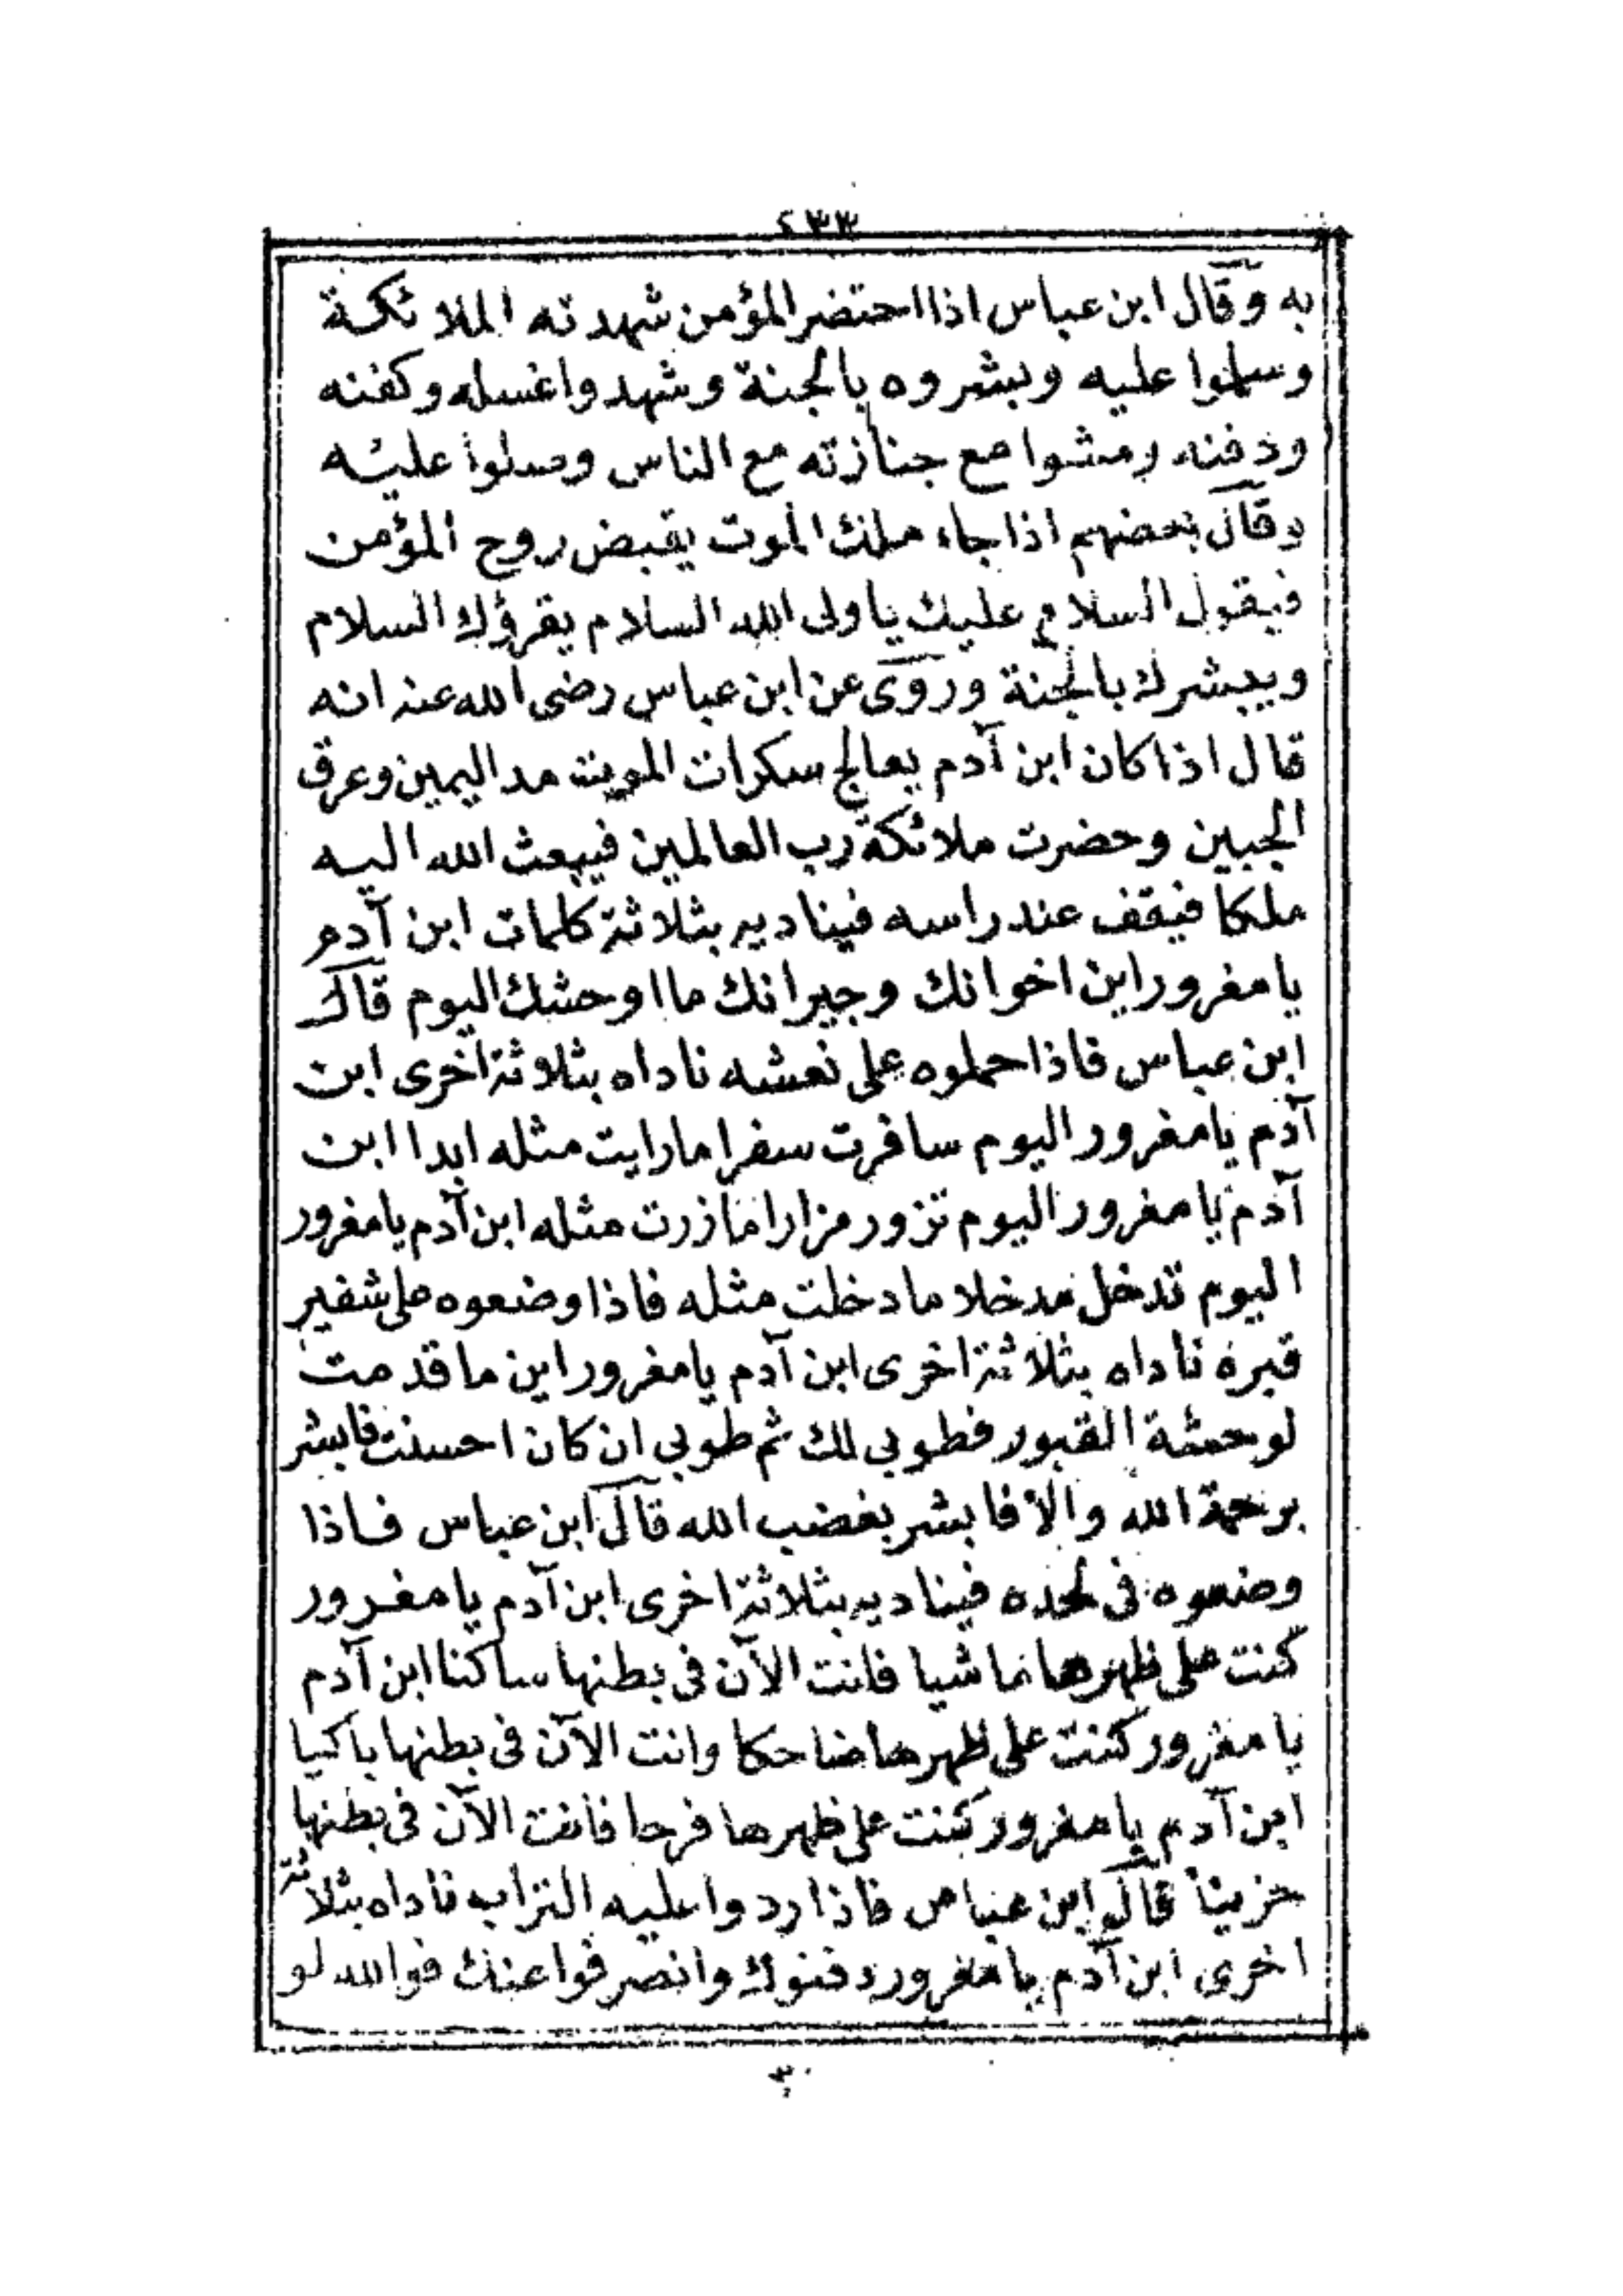 ٢٣٣
به وقال ابن عباس اذا احتضر المؤمن شهدته الملائكة
وسلموا عليه وبشروه بالجنة وشهدوا غسله وكفنه
ودفنه ومشوا مع جنازته مع الناس وصلوا عليه
وقال بعضهم اذا جاء ملك الموت يقبض روح المؤمن
فيقول السلام عليك يا ولى الله السلام يقرؤك السلام
ويبشرك بالجنة وروى عن ابن عباس رضى الله عنه انه
قال اذا كان ابن آدم يعالج سكرات الموت مد اليمين وعرق
الجبين وحضرت ملائكة رب العالمين فيبعث الله اليه
ملكا فيقف عند راسه فيناديه بثلاثة كلمات ابن آدم
يا مغرور اين اخوانك وجيرانك ما اوحشك اليوم قال
ابن عباس فاذا حملوه على نعشه ناداه بثلاثة اخرى ابن
آدم يا مغرور اليوم سافرت سفرا ما رايت مثله ابدا ابن
آدم يا مغرور اليوم تزور مزارا ما زرت مثله ابن آدم يا مغرور
اليوم تدخل مدخلا ما دخلت مثله فاذا وضعوه على شفير
قبره ناداه بثلاثة اخرى ابن آدم يا مغرور اين ما قدمت
لوحشة القبور فطوبى لك ثم طوبى ان كان احسنت فابشر
برحمة الله والا فابشر بغضب الله قال ابن عباس فاذا
وضعوه فى لحده فيناديه بثلاثة اخرى ابن آدم يا مغرور
كنت على ظهرها ماشيا فانت الآن فى بطنها ساكنا ابن آدم
يا مغرور كنت على ظهرها ضاحكا وانت الآن فى بطنها باكيا
ابن آدم يا مغرور كنت على ظهرها فرحا فانت الآن فى بطنها
حزينا قال ابن عباس فاذا ردوا عليه التراب ناداه بثلاثة
اخرى ابن آدم يا مغرور دفنوك وانصرفوا عنك فوالله لو
٣٠